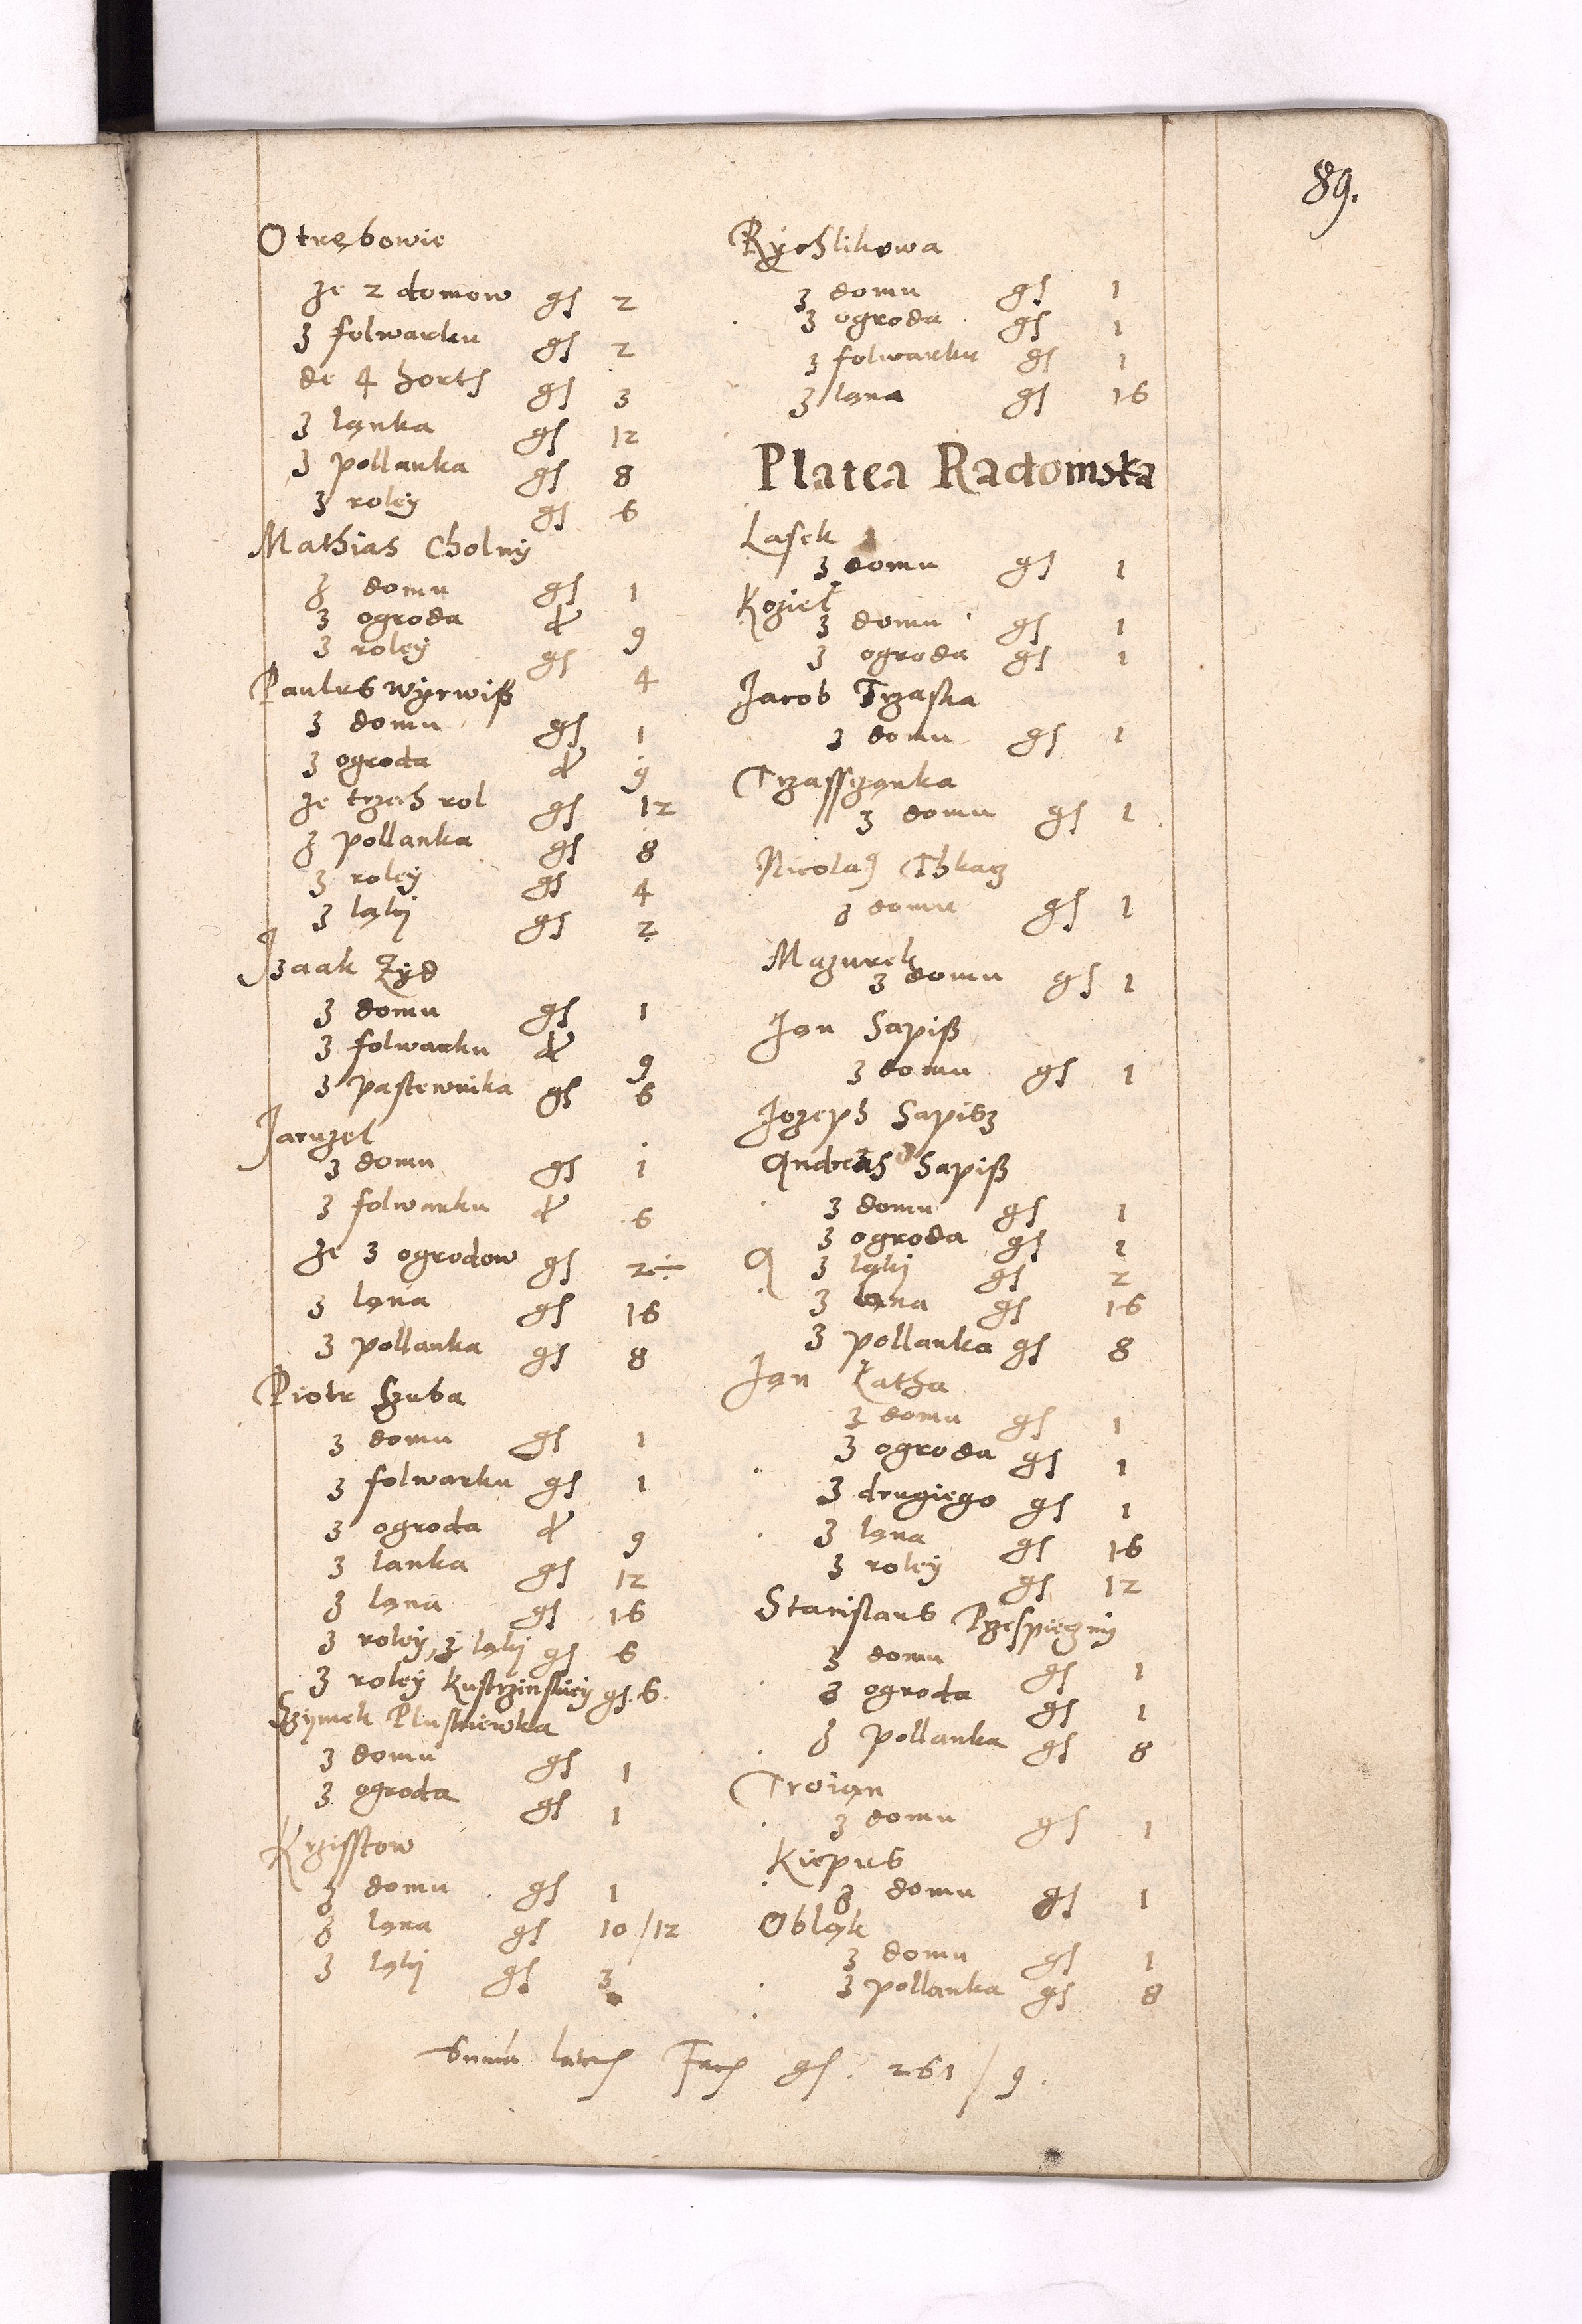 89.
Otrębowie
ze 2 domow gs 2
z folwarku gs 2
de 4 hortis gs 3
z lanka gs 12
z pollanka gs 8
z roley gs 6
Mathias Cholny
z domu gs 1
z ogroda d 9
z roley gs 4
Paulus Wyrwiß
z domu gs 1
z ogroda d 9
ze trzech rol gs 12
z pollanka gs 8
z roley gs 4
z łąky gs 2
Izaak Żyd
z domu gs 1
z folwarku d 9
z pastewnika gs 6
Jaruzel
z domu gs 1
z folwarku d 6
ze 3 ogrodow gs 2÷
z lana gs 16
z pollanka gs 8
Piotr Szuba
z domu gs 1
z folwarku gs 1
z ogroda d 9
z lanka gs 12
z lana gs 16
z roley, z łąky gs 6
z roley Kustrzinskiey gs. 6.
Szymek Pluskiewka
z domu gs 1
z ogroda gs 1
Krzisstow
z domu gs 1
z lana gs 10/12
z łąky gs 3
Rychlikowa
z domu gs 1
z ogroda gs 1
z folwarku gs 1
z lana gs 16
Platea Radomska
Lasek
z domu gs 1
Kozieł
z domu gs 1
z ogroda gs 1
Jacob Trzaska
z domu gs 1
Trzasszanka
z domu gs 1
Nicolaus Thkacz
z domu gs 1
Mazurek
z domu gs 1
Jan Sapiß
z domu gs 1
Jozeph Sapisz
Andreas Sapiß
z domu gs 1
z ogroda gs 1
z łąky gs 2
z lana gs 16
z pollanka gs 8
Jan Łatha
z domu gs 1
z ogroda gs 1
z drugiego gs 1
z lana gs 16
z roley gs 12
Stanislaus Przespieczny
z domu gs 1
z ogroda gs 1
z pollanka gs 8
Troian
z domu gs 1
Kiepus
z domu gs 1
Obląk
z domu gs 1
z pollanka gs 8
Suma lateris gs. 261/9.